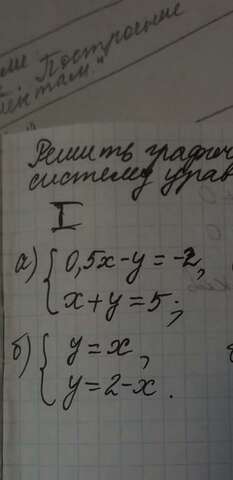 Построение
Решить графич
систему урав
I
а) { 0,5x-y=-2,
x+y=5;
б) { y=x,
y=2-x.